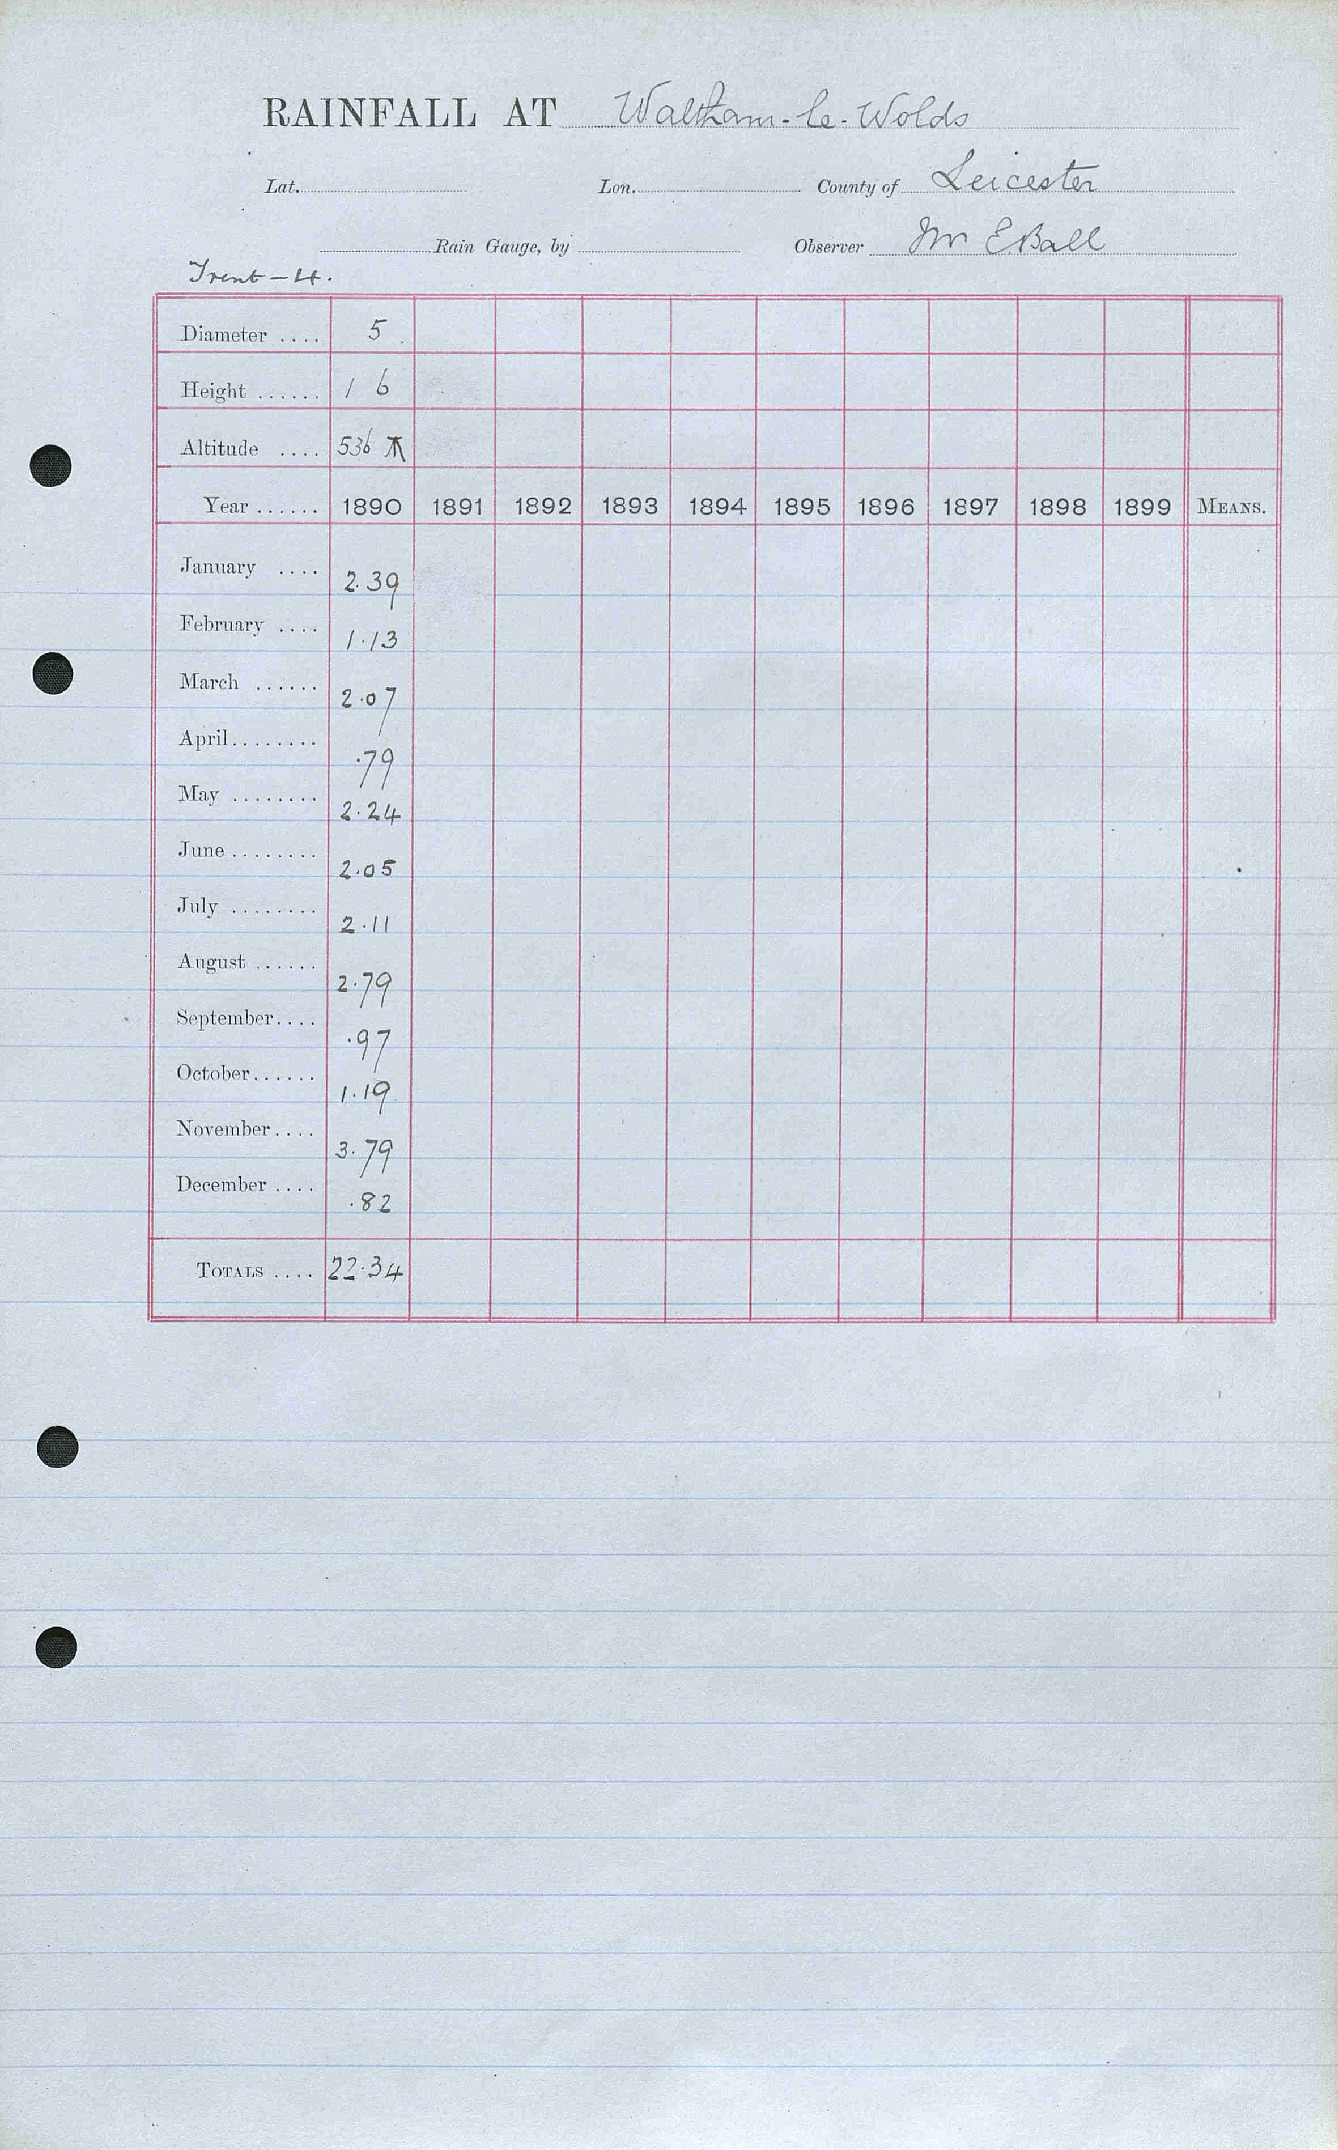 RAINFALL AT Waltham-le-Wolds
Lat. Lon. County of Leicester
Rain Gauge, by Observer Mr E Ball
Trent - 4.
Diameter .... 5
Height ...... 1 6
Altitude .... 536
Year ...... 1890 1891 1892 1893 1894 1895 1896 1897 1898 1899 MEANS.
January .... 2.39
February .... 1.13
March ...... 2.07
April........ .79
May ........ 2.24
June ........ 2.05
July ........ 2.11
August ...... 2.79
September.... .97
October...... 1.19
November.... 3.79
December .... .82
TOTALS .... 22.34